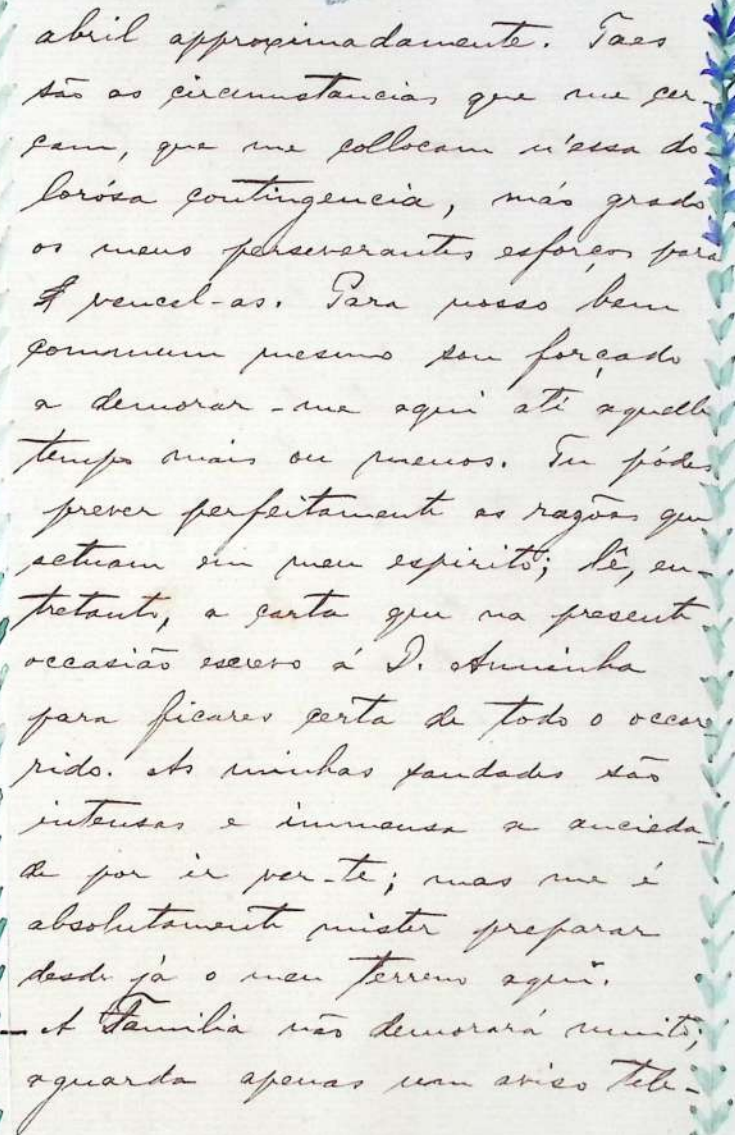 abril approximadamente. Taes
são as circumstancias que me cer-
cam, que me collocam n'essa do-
lorósa contingencia, máo grado
os meus perseverantes esforços para
vencel-as. Para nosso bem
commum mesmo sou forçado
a demorar-me aqui até aquelle
tempo mais ou menos. Tu pódes
prever perfeitamente as razões que
actuam em meu espirito; lê, en-
tretanto, a carta que na presente
occasião escrevo á D. Anninha
para ficares certa de todo o occor-
rido. As minhas saudades são
intensas e immensa a ancieda-
de por ir ver-te; mas me é
absolutamente mister preparar
desde já o meu terreno aqui.
- A Familia não demorará muito;
aguarda apenas um aviso tele-